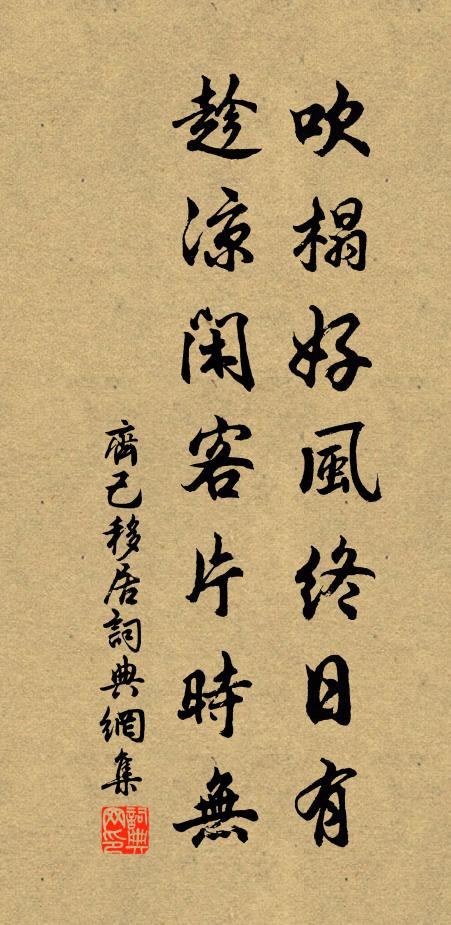 吹榻好風終日有
趁凉閑客片時無
齊己移居詞典網集
詞典網印